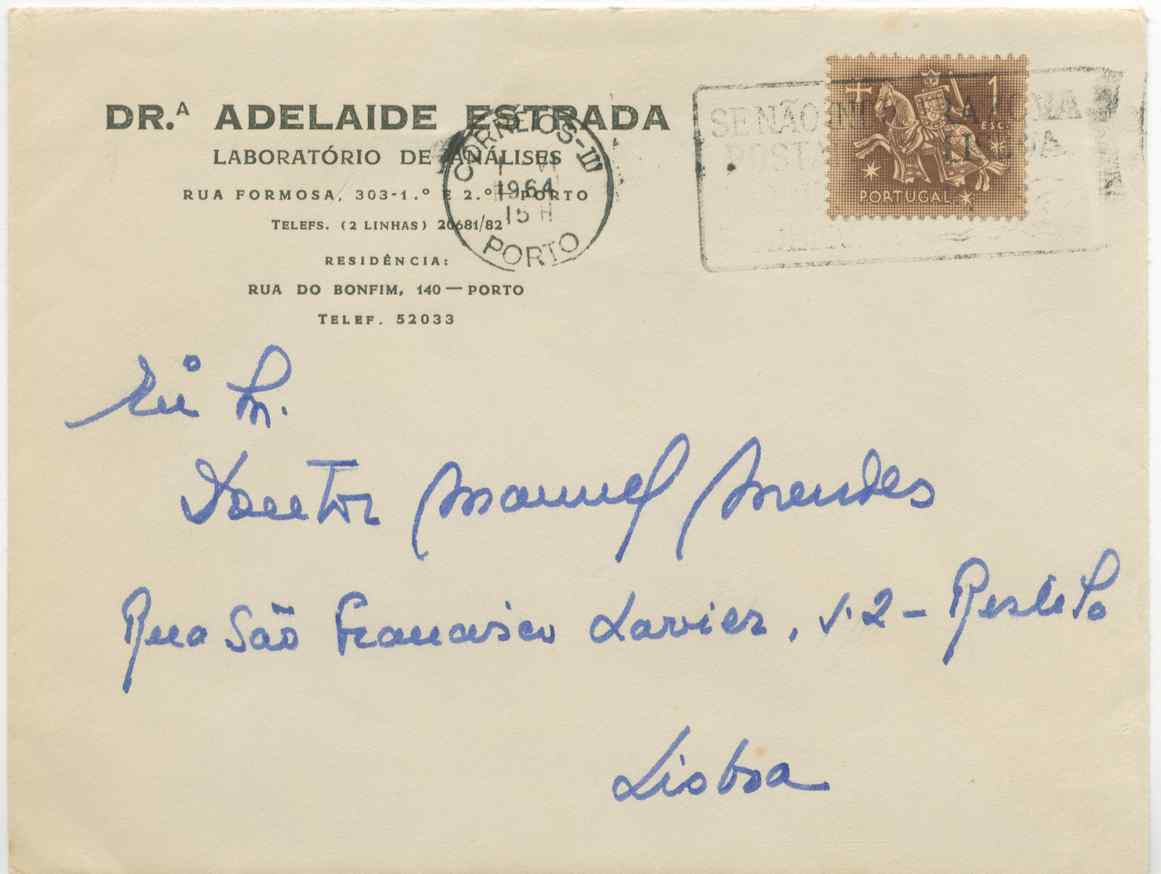 DR.ª ADELAIDE ESTRADA
LABORATÓRIO DE ANÁLISES
RUA FORMOSA, 303-1.º E 2.º - PORTO
TELEFS. (2 LINHAS) 20681/82
RESIDÊNCIA:
RUA DO BONFIM, 140 — PORTO
TELEF. 52033
CORREIOS-III
1964
15 H
PORTO
SE NÃO
POSTA
1
ESC.
PORTUGAL
Doutor Manuel Mendes
Rua São Francisco Xavier, 12 - Restelo
Lisboa